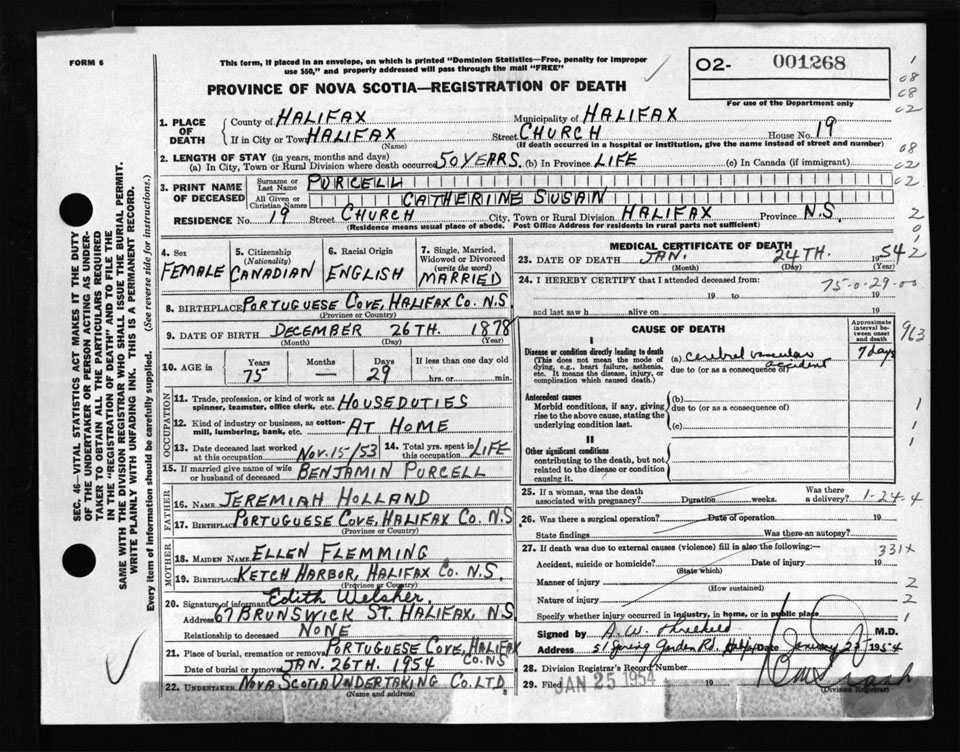 FORM 6
This form, if placed in an envelope, on which is printed "Dominion Statistics—Free, penalty for improper
use $50," and properly addressed will pass through the mail "FREE"
O2- 001268
For use of the Department only
PROVINCE OF NOVA SCOTIA—REGISTRATION OF DEATH
1. PLACE OF DEATH
County of HALIFAX Municipality of HALIFAX
If in City or Town HALIFAX Street CHURCH House No. 19
(Name) (If death occurred in a hospital or institution, give the name instead of street and number)
2. LENGTH OF STAY (in years, months and days)
(a) In City, Town or Rural Division where death occurred 50 YEARS. (b) In Province LIFE (c) In Canada (if immigrant)
3. PRINT NAME OF DECEASED
Surname or Last Name PURCELL
All Given or Christian Names CATHERINE SUSAN
RESIDENCE No. 19 Street CHURCH City, Town or Rural Division HALIFAX Province N.S.
(Residence means usual place of abode. Post Office Address for residents in rural parts not sufficient)
4. Sex FEMALE
5. Citizenship (Nationality) CANADIAN
6. Racial Origin ENGLISH
7. Single, Married, Widowed or Divorced (write the word) MARRIED
8. BIRTHPLACE PORTUGUESE COVE, HALIFAX CO. N.S.
(Province or Country)
9. DATE OF BIRTH DECEMBER 26TH. 1878
(Month) (Day) (Year)
10. AGE in Years 75 Months — Days 29 If less than one day old
hrs. or min.
OCCUPATION
11. Trade, profession, or kind of work as spinner, teamster, office clerk, etc. HOUSEDUTIES
12. Kind of industry or business, as cotton-mill, lumbering, bank, etc. AT HOME
13. Date deceased last worked at this occupation NOV. 15/53 14. Total yrs. spent in this occupation LIFE
15. If married give name of wife or husband of deceased BENJAMIN PURCELL
FATHER
16. NAME JEREMIAH HOLLAND
17. BIRTHPLACE PORTUGUESE COVE, HALIFAX CO. N.S.
(Province or Country)
MOTHER
18. MAIDEN NAME ELLEN FLEMMING
19. BIRTHPLACE KETCH HARBOR, HALIFAX CO. N.S.
(Province or Country)
20. Signature of informant Edith Welsher
Address 67 BRUNSWICK ST. HALIFAX, N.S.
Relationship to deceased NONE
21. Place of burial, cremation or removal PORTUGUESE COVE, HALIFAX CO. N.S
Date of burial or removal JAN. 26TH. 1954
22. UNDERTAKER NOVA SCOTIA UNDERTAKING CO. LTD.
(Name and address)
MEDICAL CERTIFICATE OF DEATH
23. DATE OF DEATH JAN. 24TH. 1954
(Month) (Day) (Year)
24. I HEREBY CERTIFY that I attended deceased from:
75-0-29-00
19 to 19
and last saw h alive on 19
CAUSE OF DEATH
Approximate interval between onset and death
I
Disease or condition directly leading to death (a) cerebral vascular accident 7 days
(This does not mean the mode of dying, e.g., heart failure, asthenia, etc. It means the disease, injury, or complication which caused death.)
due to (or as a consequence of)
Antecedent causes (b)
Morbid conditions, if any, giving rise to the above cause, stating the underlying condition last.
due to (or as a consequence of)
(c)
II
Other significant conditions
contributing to the death, but not related to the disease or condition causing it.
25. If a woman, was the death associated with pregnancy? Duration weeks. Was there a delivery?
1-24-4
26. Was there a surgical operation? Date of operation 19
State findings Was there an autopsy?
27. If death was due to external causes (violence) fill in also the following:—
331x
Accident, suicide or homicide? Date of injury 19
(State which)
Manner of injury
(How sustained)
Nature of injury
Specify whether injury occurred in industry, in home, or in public place
Signed by A. W. M.D.
Address 51 Spring Garden Rd. Hfx Date January 25 1954
28. Division Registrar's Record Number
29. Filed JAN 25 1954 19
(Division Registrar)
SEC. 46—VITAL STATISTICS ACT MAKES IT THE DUTY
OF THE UNDERTAKER OR PERSON ACTING AS UNDER-
TAKER TO OBTAIN ALL THE PARTICULARS REQUIRED
IN THE "REGISTRATION OF DEATH" AND TO FILE THE
SAME WITH THE DIVISION REGISTRAR WHO SHALL ISSUE THE BURIAL PERMIT.
WRITE PLAINLY WITH UNFADING INK. THIS IS A PERMANENT RECORD.
Every item of information should be carefully supplied. (See reverse side for instructions.)
1
08
08
02
08
02
02
2
0
1
2
963
1
1
1
2
2
1